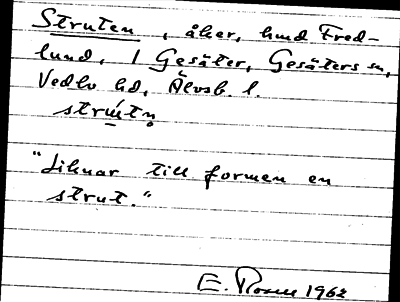 Struten, åker, hmd Fred-
lund, 1 Gesäter, Gesäters sn,
Vedbo hd, Älvsb. l.
strútn̥
"Liknar till formen en
strut."
E. 1962